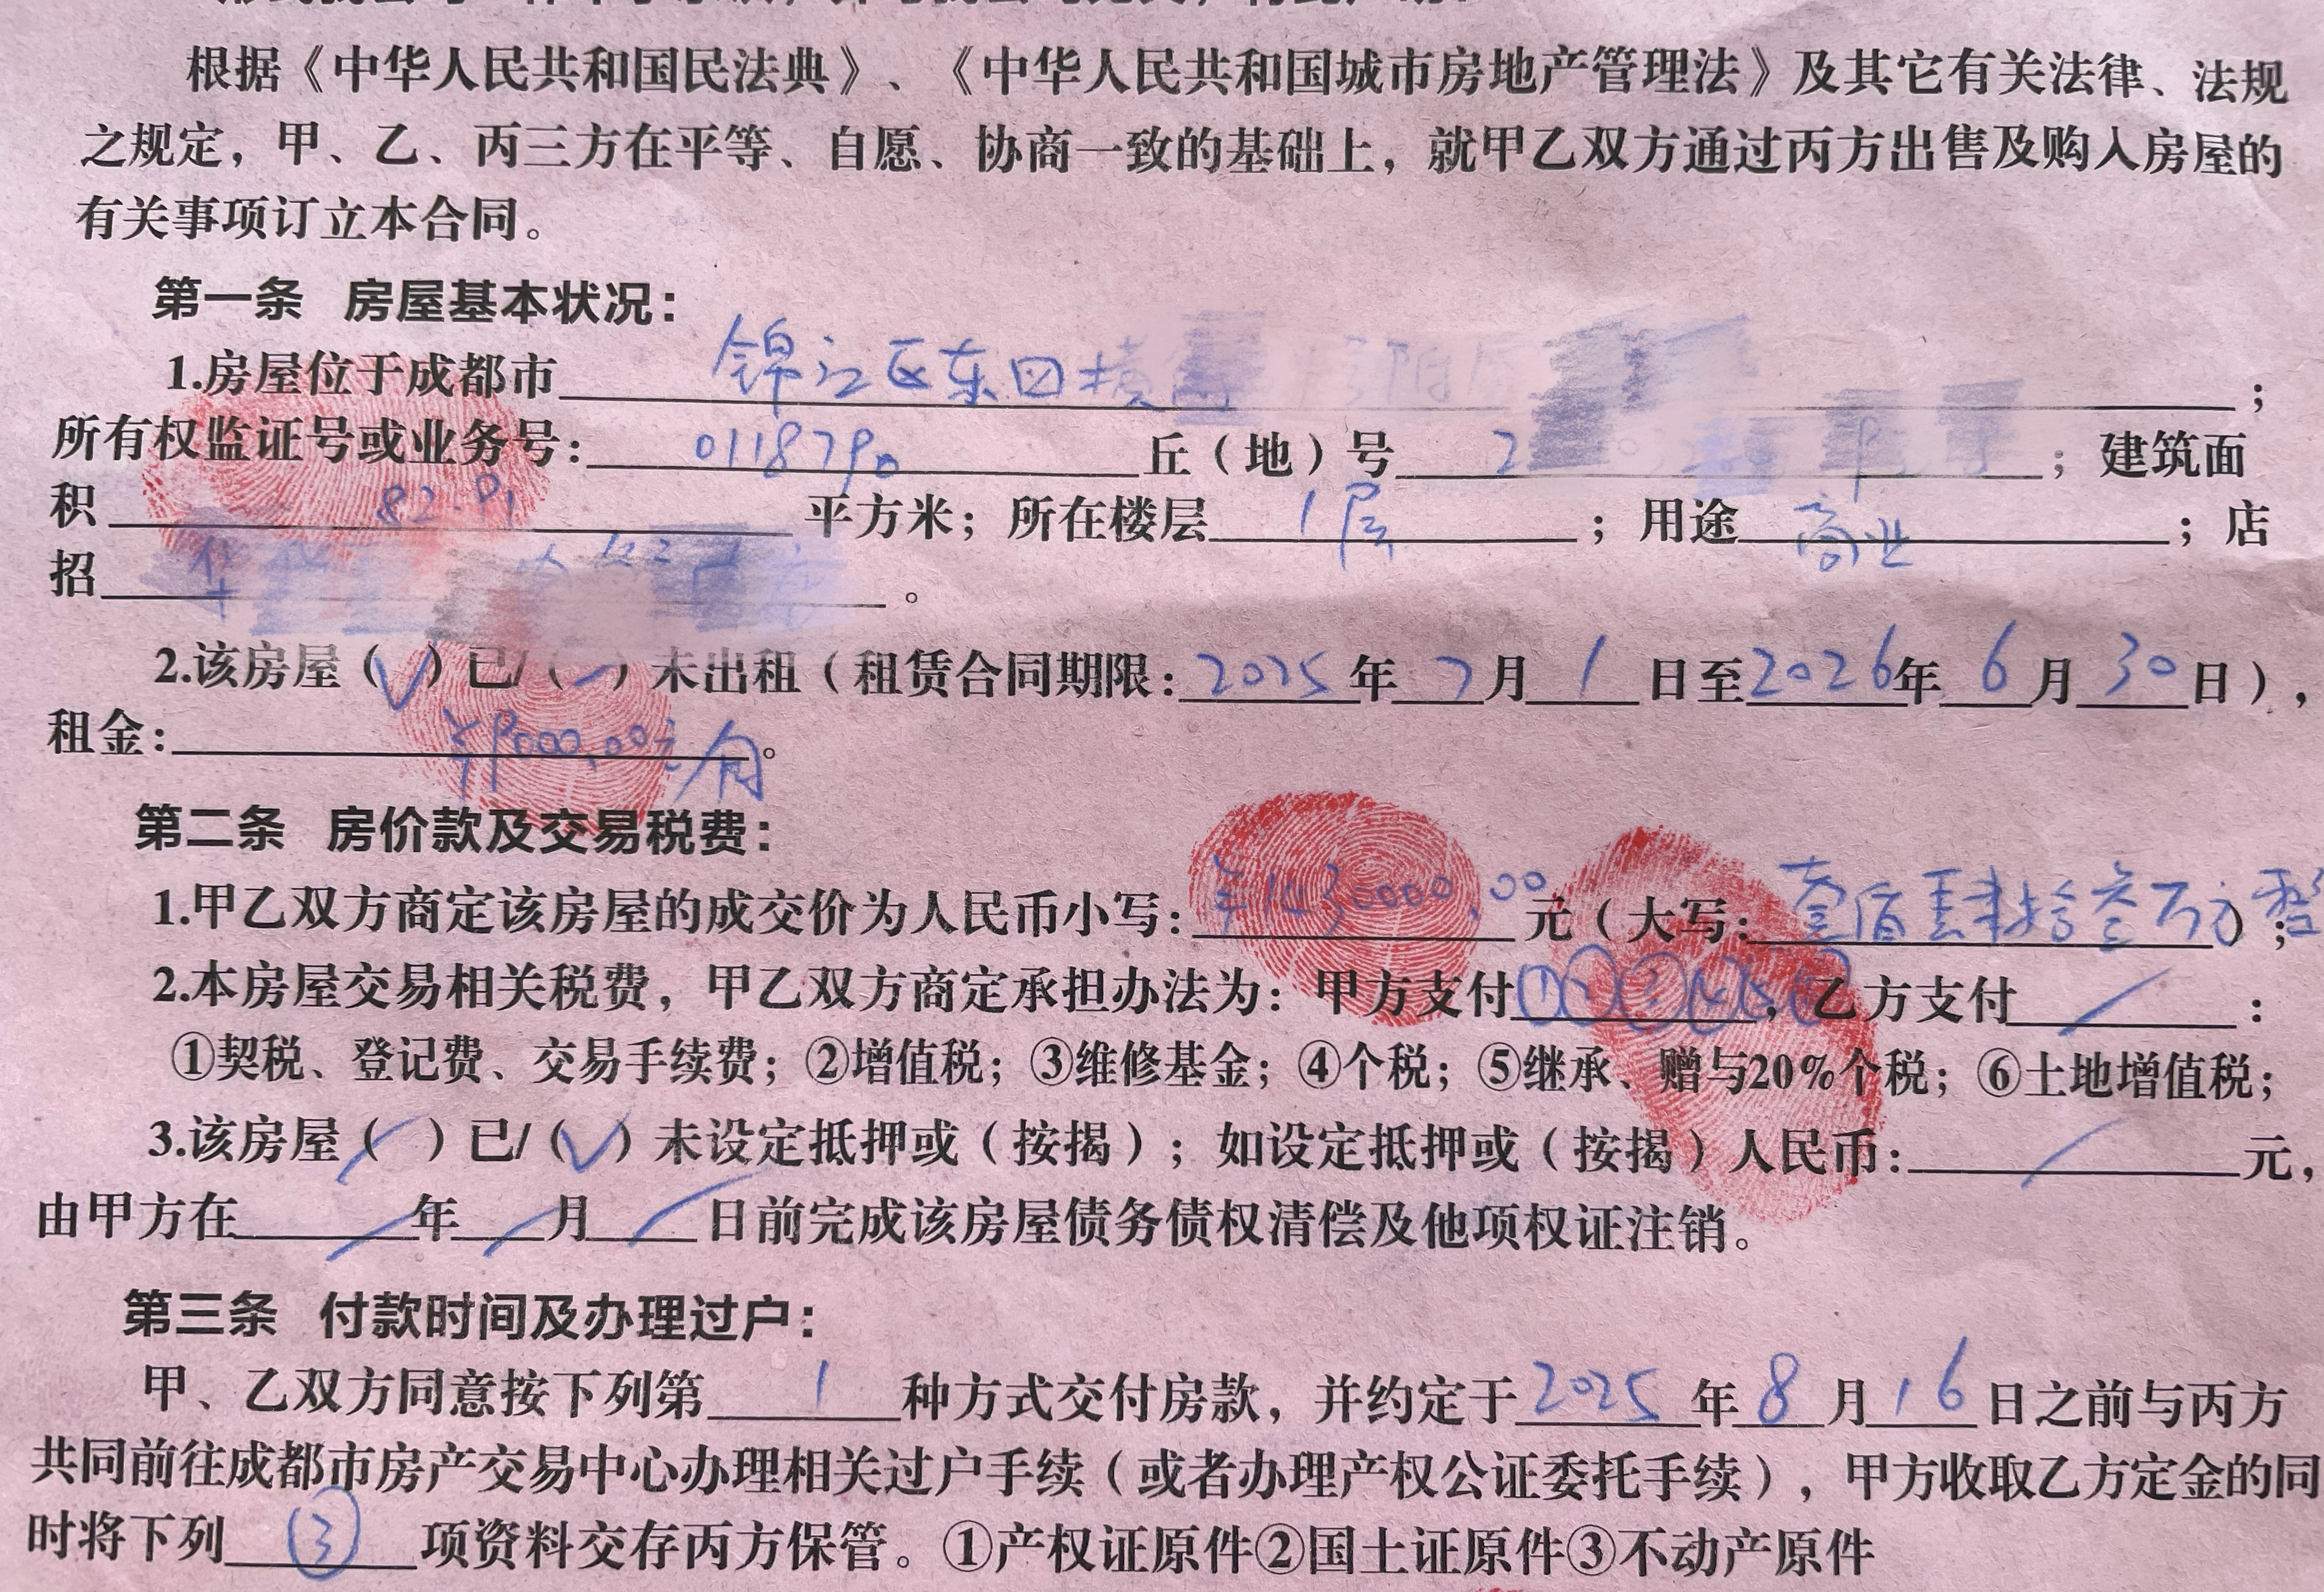 根据《中华人民共和国民法典》、《中华人民共和国城市房地产管理法》及其它有关法律、法规
之规定，甲、乙、丙三方在平等、自愿、协商一致的基础上，就甲乙双方通过丙方出售及购入房屋的
有关事项订立本合同。
第一条 房屋基本状况：
1.房屋位于成都市 锦江区东四横；
所有权监证号或业务号： 0118790 丘（地）号 2 ；建筑面
积 平方米；所在楼层 1层 ；用途 商业 ；店
招 。
2.该房屋（√）已/（ ）未出租（租赁合同期限：2025年7月1日至2026年6月30日），
租金：¥9000.00元/月。
第二条 房价款及交易税费：
1.甲乙双方商定该房屋的成交价为人民币小写：¥1430000.00元（大写：壹佰肆拾叁万元整）；
2.本房屋交易相关税费，甲乙双方商定承担办法为：甲方支付①②③④⑤⑥，乙方支付 / ：
①契税、登记费、交易手续费；②增值税；③维修基金；④个税；⑤继承、赠与20%个税；⑥土地增值税；
3.该房屋（/）已/（√）未设定抵押或（按揭）；如设定抵押或（按揭）人民币： / 元，
由甲方在 / 年 / 月 / 日前完成该房屋债务债权清偿及他项权证注销。
第三条 付款时间及办理过户：
甲、乙双方同意按下列第 1 种方式交付房款，并约定于2025年8月16日之前与丙方
共同前往成都市房产交易中心办理相关过户手续（或者办理产权公证委托手续），甲方收取乙方定金的同
时将下列 ③ 项资料交存丙方保管。①产权证原件②国土证原件③不动产原件